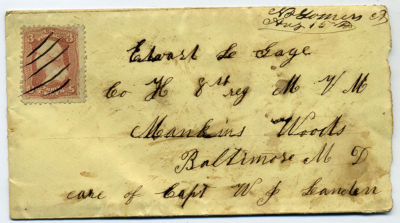 3
Aug 15
Edwast L Gage
Co H 8th reg M V M
Mankins Woods
Baltimore M D
care of Capt W J Landen